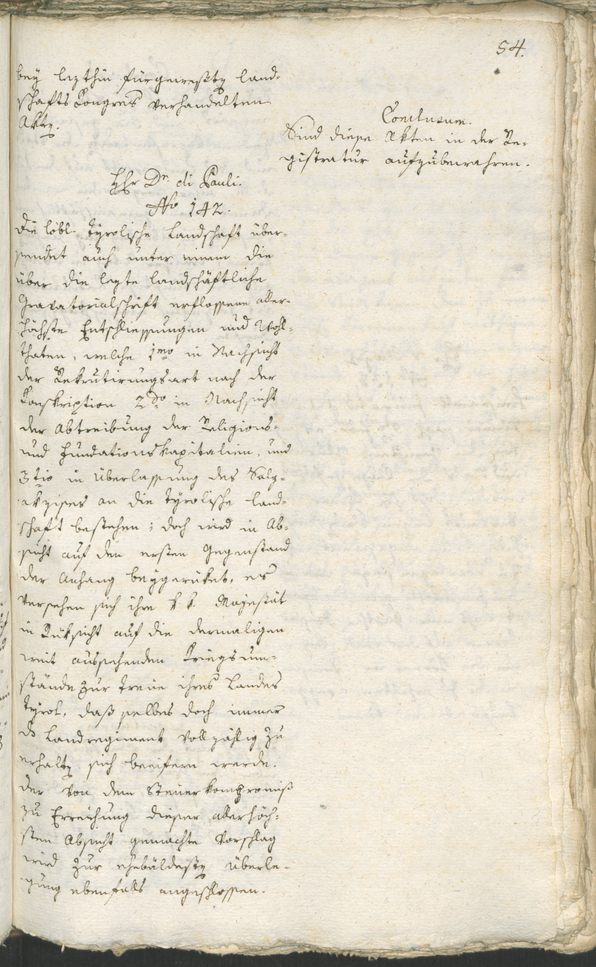 54.
bey lezthin fürgewesten land-
schafts Kongress verhandelten
Akten.
Conclusum.
Sind diese Akten in der Re-
gistratur aufzubewahren.
Hhr Dr. di Pauli.
No 142.
Die löbl. Tyrolische Landschaft über-
sendet auch unter einem die
über die lezte landschäftliche
Gravatorialschrift erflossene aller-
höchste Entschliessungen und Wohl-
thaten, welche 1mo in Nachsicht
der Rekrutirungsart nach der
Konskription 2do in Nachsicht
der Abtreibung der Religions-
und Fundationskapitalien, und
3tio in Überlassung des Salz-
akzises an die Tyrolische Land-
schaft bestehen; doch wird in Ab-
sicht auf den ersten Gegenstand
der Anhang beygerücket, es
versehen sich ihre k. k. Majestät
in Rüksicht auf die dermaligen
weit aussehenden Kriegsum-
stände zur Treue ihres Landes
Tyrol, daß selbes doch immer
das Landregiment vollzählig zu
erhalten sich beeifern werde.
Der von dem Steuerkompromiß
zu Erreichung dieser allerhöch-
sten Absicht gemachte Vorschlag
wird zur ehebäldesten Überle-
gung ebenfalls angeschlossen.